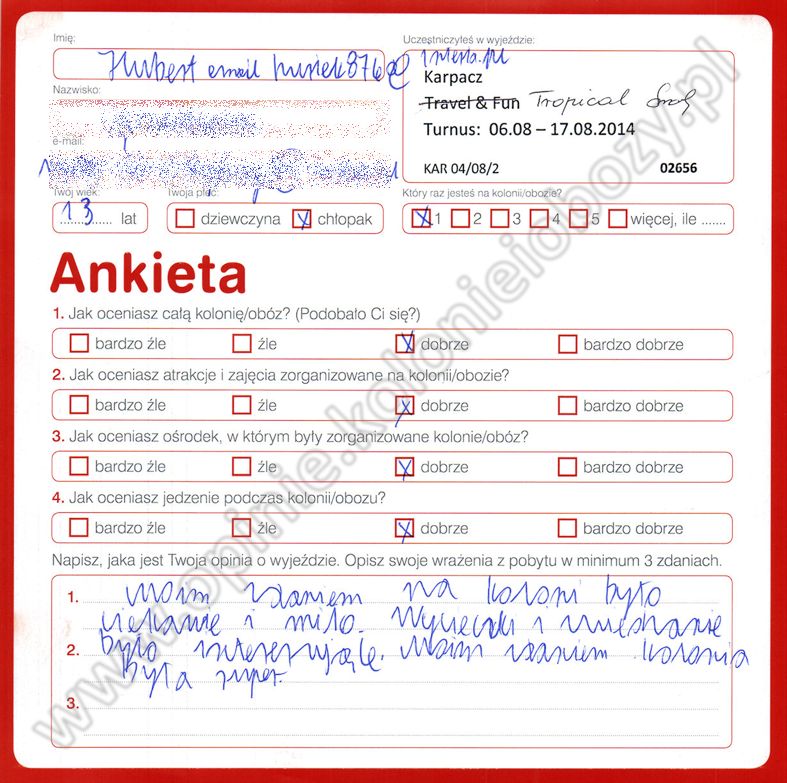 Imię:
Hubert email
Uczestniczyłeś w wyjeździe:
interia.pl
Karpacz
Travel & Fun Tropical
Turnus: 06.08 – 17.08.2014
KAR 04/08/2 02656
Nazwisko:
e-mail:
Twój wiek:
13 lat
Twoja płeć:
dziewczyna chłopak
Który raz jesteś na kolonii/obozie?
1 2 3 4 5 więcej, ile .......
Ankieta
1. Jak oceniasz całą kolonię/obóz? (Podobało Ci się?)
bardzo źle źle dobrze bardzo dobrze
2. Jak oceniasz atrakcje i zajęcia zorganizowane na kolonii/obozie?
bardzo źle źle dobrze bardzo dobrze
3. Jak oceniasz ośrodek, w którym były zorganizowane kolonie/obóz?
bardzo źle źle dobrze bardzo dobrze
4. Jak oceniasz jedzenie podczas kolonii/obozu?
bardzo źle źle dobrze bardzo dobrze
Napisz, jaka jest Twoja opinia o wyjeździe. Opisz swoje wrażenia z pobytu w minimum 3 zdaniach.
1. moim zdaniem na koloni było
ciekawie i miło. Wycieczki i
2. było interesujące. Moim zdaniem kolonia
była super.
3.
www.opinie.kolonieiobozy.pl